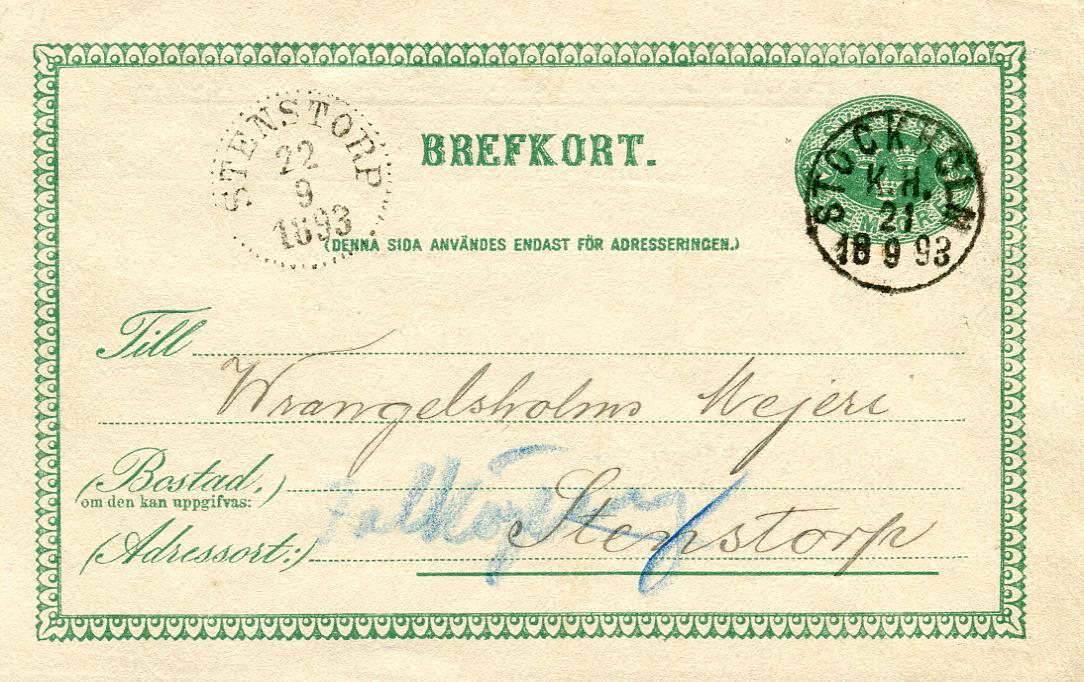 STENSTORP
22
9
1893
BREFKORT.
(DENNA SIDA ANVÄNDES ENDAST FÖR ADRESSERINGEN.)
STOCKHOLM
K.H.
21
18 9 93
Till
Wrangelsholms Mejeri
(Bostad,)
om den kan uppgifvas:
Falköping
Stenstorp
(Adressort:)